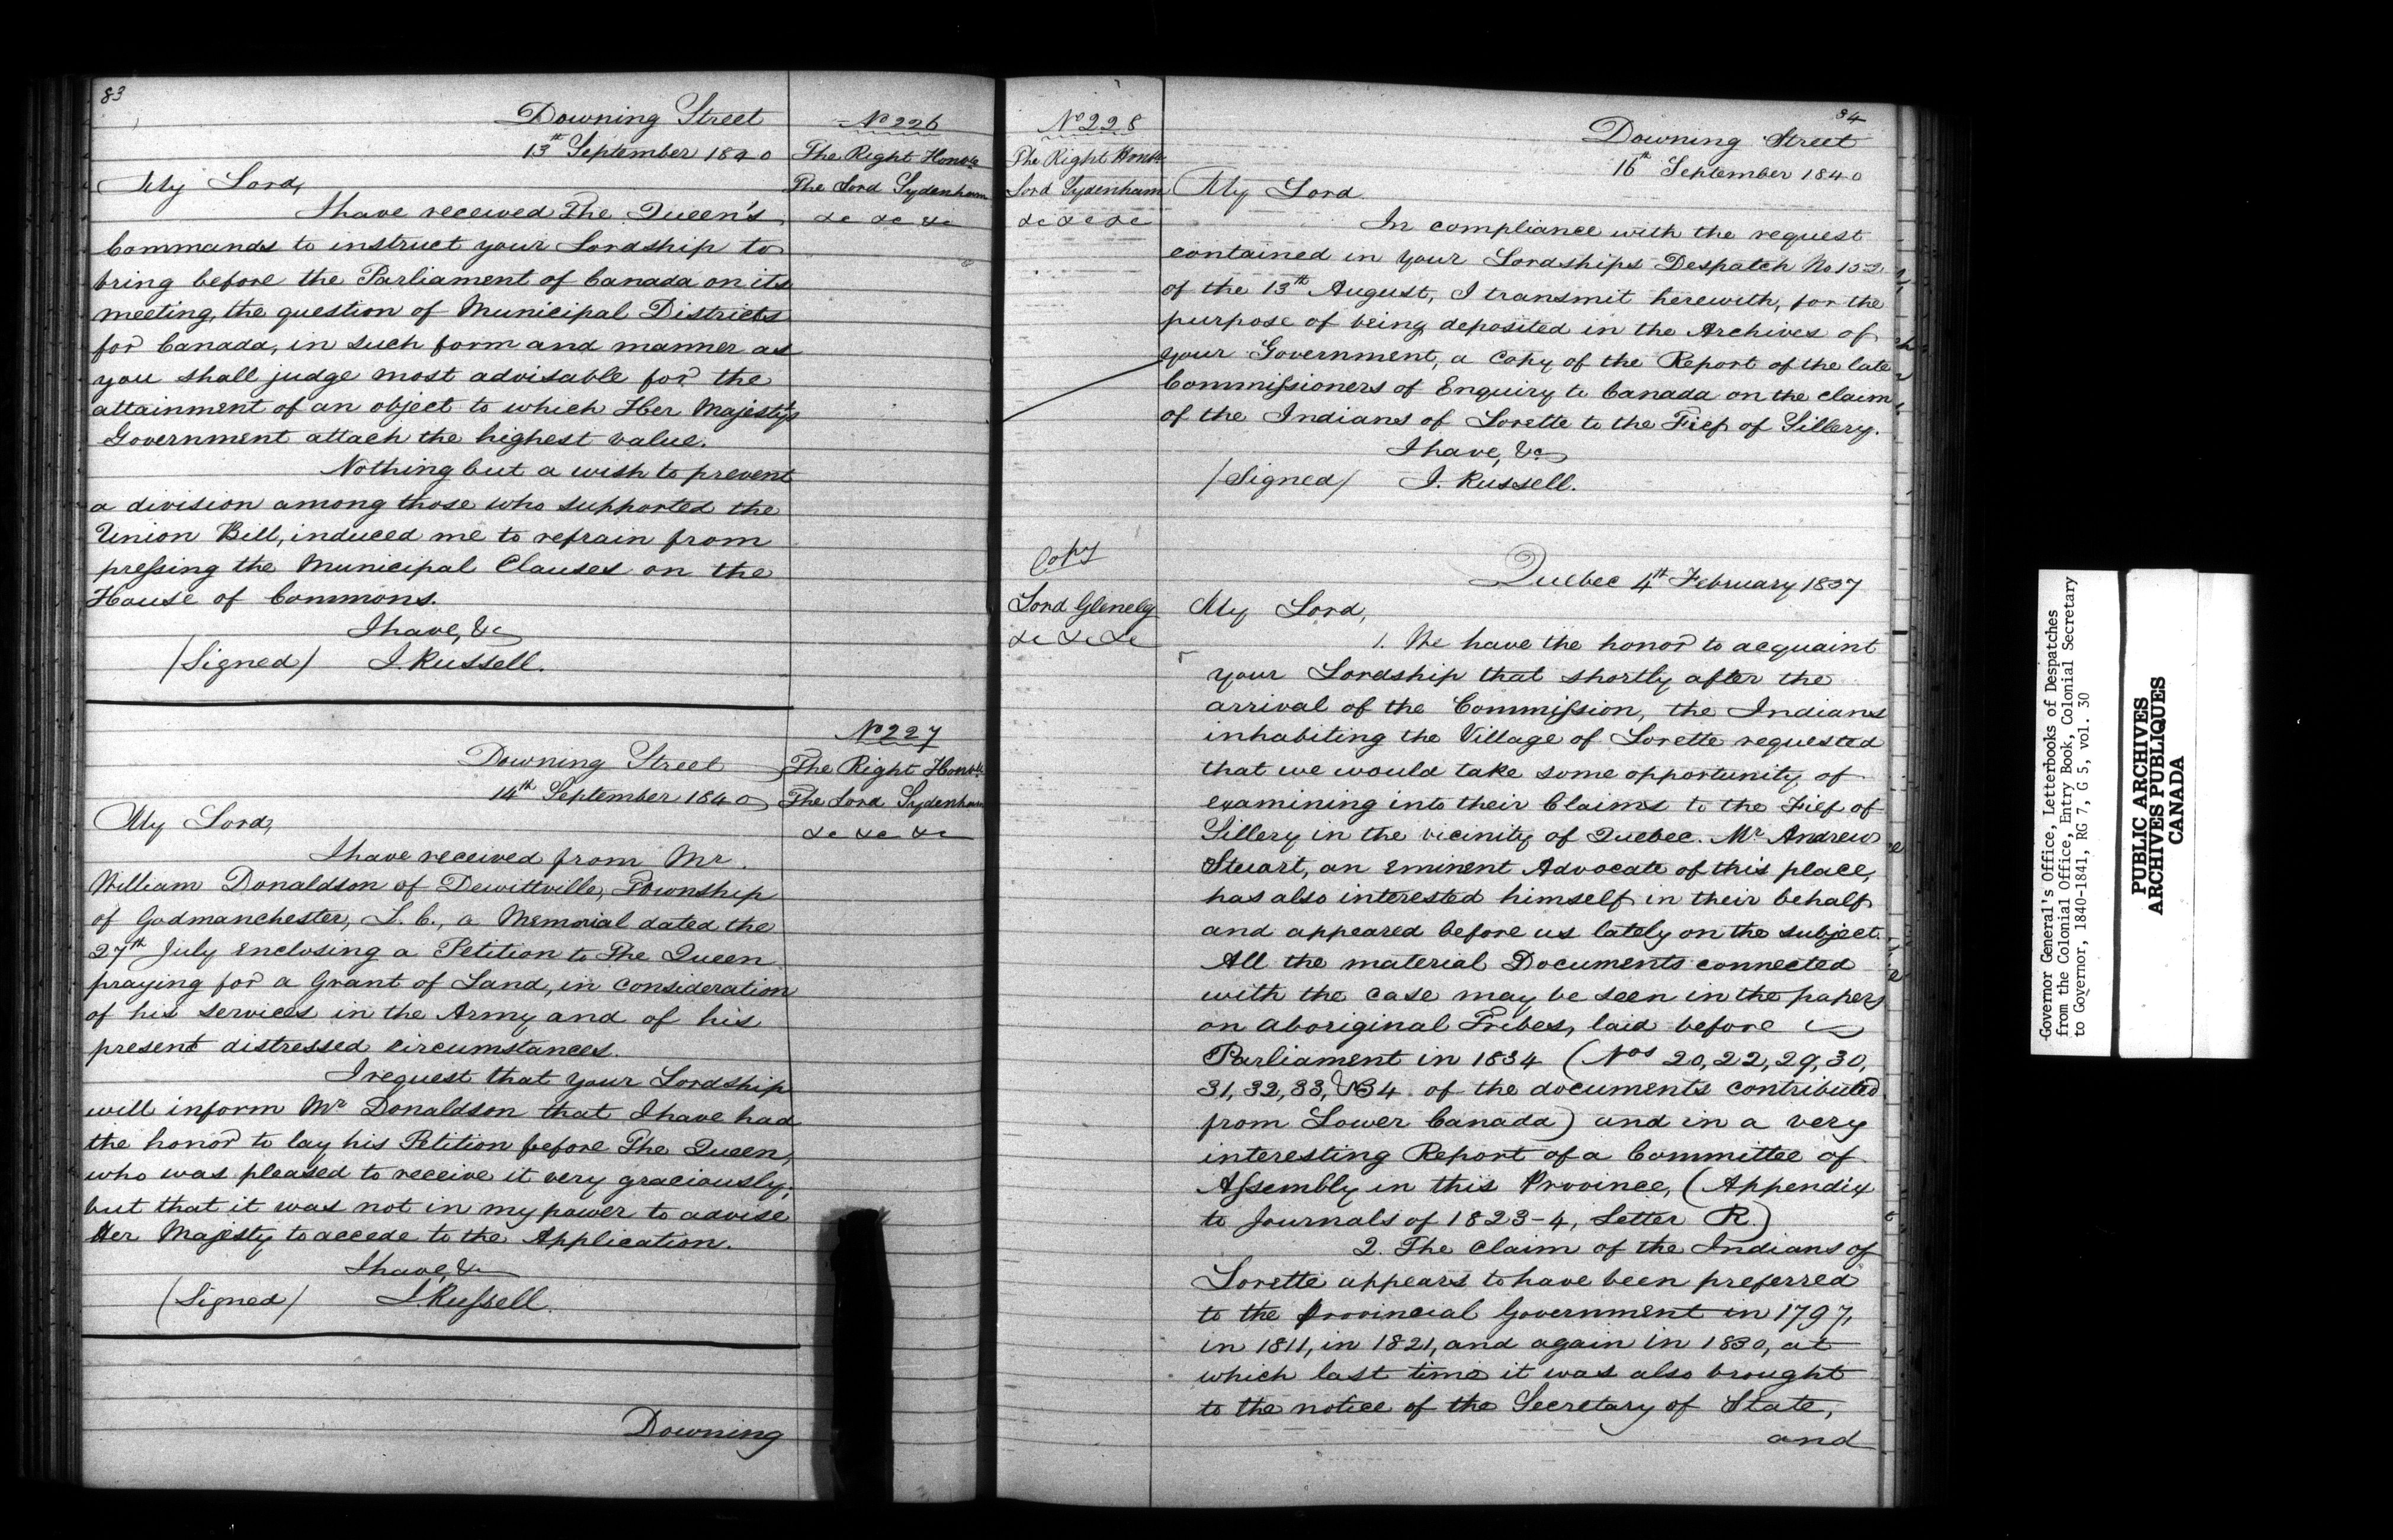 83
Downing Street
13th September 1840
No 226
The Right Honble
The Lord Sydenham
&c &c &c
My Lord,
I have received The Queen's
Commands to instruct your Lordship to
bring before the Parliament of Canada on its
meeting, the question of Municipal Districts
for Canada, in such form and manner as
you shall judge most advisable for the
attainment of an object to which Her Majesty's
Government attach the highest value.
Nothing but a wish to prevent
a division among those who supported the
Union Bill, induced me to refrain from
pressing the Municipal Clauses on the
House of Commons.
I have, &c
/Signed/ J. Russell.
No 227
The Right Honble
The Lord Sydenham
&c &c &c
Downing Street
14th September 1840
My Lord,
I have received from Mr.
William Donaldson of Dewittville, Township
of Godmanchester, L. C., a Memorial dated the
27th July enclosing a Petition to The Queen
praying for a Grant of Land, in consideration
of his services in the Army and of his
present distressed circumstances.
I request that your Lordship
will inform Mr Donaldson that I have had
the honor to lay his Petition before The Queen,
who was pleased to receive it very graciously;
but that it was not in my power to advise
Her Majesty to accede to the Application.
I have, &c
(Signed) J. Russell.
Downing
84
No 228
The Right Honble
Lord Sydenham
&c &c &c
Downing Street
16th September 1840
My Lord
In compliance with the request
contained in your Lordships Despatch No 152
of the 13th August, I transmit herewith, for the
purpose of being deposited in the Archives of
your Government, a copy of the Report of the late
Commissioners of Enquiry to Canada on the claim
of the Indians of Lorette to the Fief of Sillery.
I have, &c
/Signed/ J. Russell.
Copy
Lord Glenelg
&c &c &c
Quebec 4th February 1837
My Lord,
1. We have the honor to acquaint
your Lordship that shortly after the
arrival of the Commission, the Indians
inhabiting the Village of Lorette requested
that we would take some opportunity of
examining into their Claims to the Fief of
Sillery in the vicinity of Quebec. Mr Andrew
Stuart, an eminent Advocate of this place,
has also interested himself in their behalf
and appeared before us lately on the subject.
All the material Documents connected
with the case may be seen in the papers
on Aboriginal Tribes, laid before
Parliament in 1834 (Nos 20, 22, 29, 30,
31, 32, 33, & 34 of the documents contributed
from Lower Canada) and in a very
interesting Report of a Committee of
Assembly in this Province, (Appendix
to Journals of 1823-4, Letter R.)
2. The Claim of the Indians of
Lorette appears to have been preferred
to the Provincial Government in 1797,
in 1811, in 1821, and again in 1830, at
which last time it was also brought
to the notice of the Secretary of State,
and
Governor General's Office, Letterbooks of Despatches
from the Colonial Office, Entry Book, Colonial Secretary
to Governor, 1840-1841, RG 7, G 5, vol. 30
PUBLIC ARCHIVES
ARCHIVES PUBLIQUES
CANADA